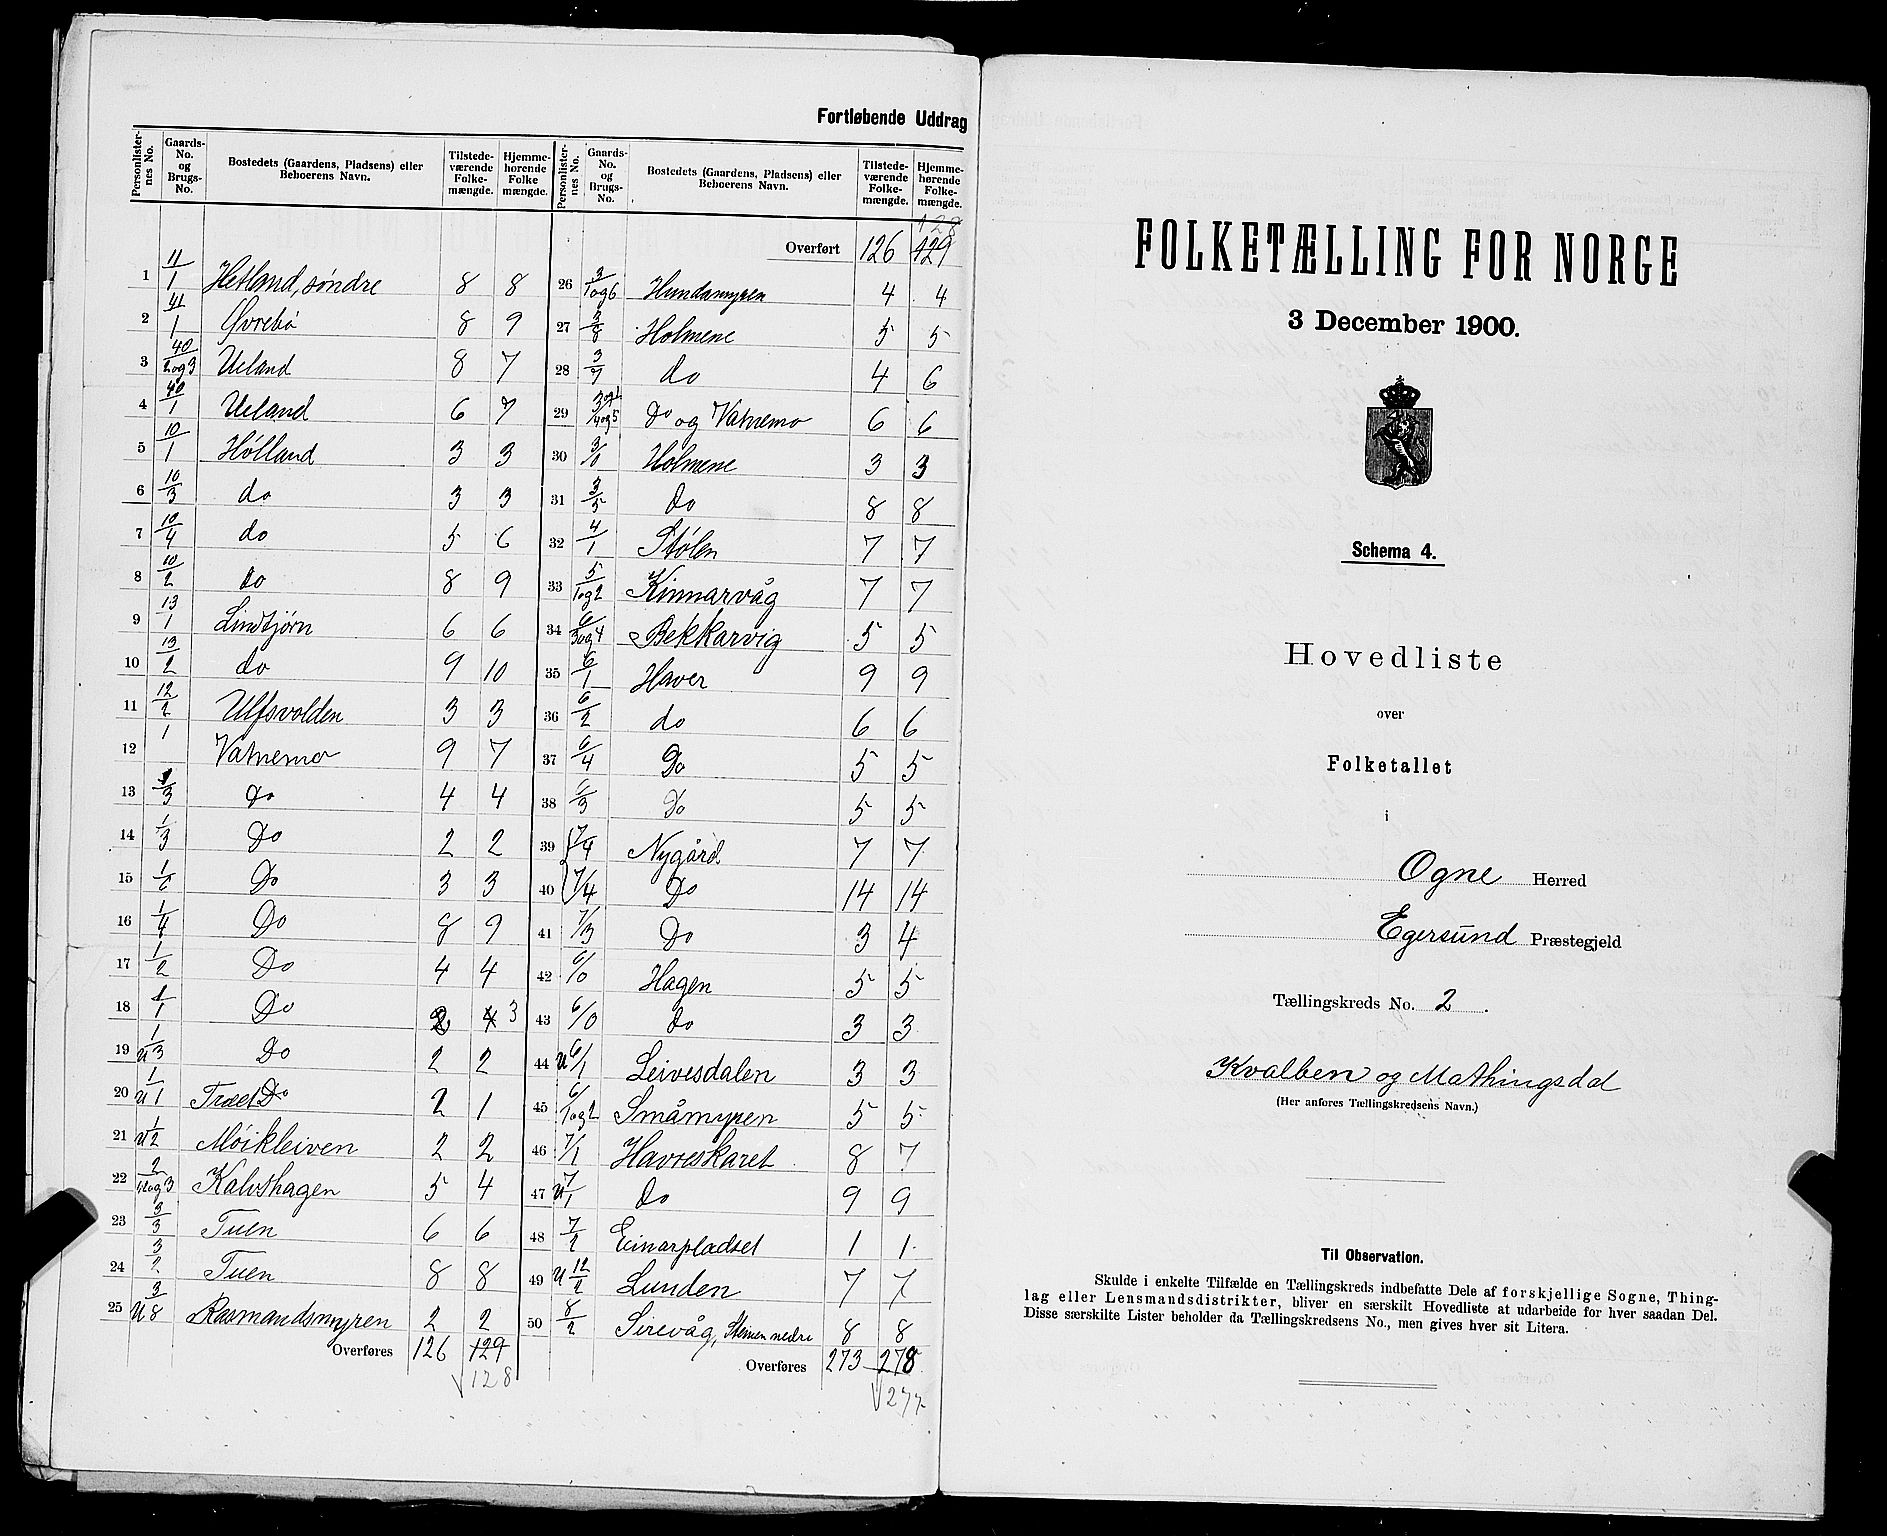 Fortløbende Uddrag
Personlister-nes No. | Gaards-No. og Brugs-No. | Bostedets (Gaardens, Pladsens) eller Beboerens Navn. | Tilstede-værende Folke-mængde. | Hjemme-hørende Folke mængde.
1 11/1 Hetland, søndre 8 8
2 41/1 Øvrebø 8 9
3 40/2og3 Ueland 8 7
4 40/1 Ueland 6 7
5 10/1 Hølland 3 3
6 10/3 do 3 3
7 10/4 do 5 6
8 10/2 do 8 9
9 13/1 Lindtjørn 6 6
10 13/2 do 9 10
11 12/2 Ulfsvolden 3 3
12 1 Vatnemo 9 7
13 1/3 Do 4 4
14 1/3 Do 2 2
15 Do 3 3
16 1/4 Do 8 9
17 1/2 Do 4 4
18 1/1 Do 2 4 3
19 U 1/3 Do 2 2
20 U 1/1 Træet Do 2 1
21 U 1/2 Møikleiven 2 2
22 Kalvshagen 5 4
23 3/3 Tuen 6 6
24 3/2 Tuen 8 8
25 U 3/8 Rasmandsmyren 2 2
Overføres 126 129
128
Personlister-nes No. | Gaards-No. og Brugs-No. | Bostedets (Gaardens, Pladsens) eller Beboerens Navn. | Tilstede-værende Folke-mængde. | Hjemme-hørende Folke-mængde.
128
Overført 126 129
26 3/1og6 Hundamyren 4 4
27 3/8 Holmene 5 5
28 do 4 6
29 Do og Vatnemo 6 6
30 3/10 Holmene 3 3
31 3/5 Do 8 8
32 4/1 Stølen 7 7
33 5/1og2 Kinnarvåg 7 7
34 6/3og4 Bekkarvig 5 5
35 6/1 Haver 9 9
36 6/2 do 6 6
37 6/4 Do 5 5
38 6/3 Do 5 5
39 7/4 Nygård 7 7
40 7/4 Do 14 14
41 7/3 Do 3 4
42 6/0 Hagen 5 5
43 6/0 do 3 3
44 U 6/1 Leivesdalen 3 3
45 6/1og2 Småmyren 5 5
46 7/1 Havreskaret 8 7
47 U 7/1 Do 9 9
48 7/2 Einarpladset 1 1
49 U 12/2 Lunden 7 7
50 8/2 Sirevåg, Stemen nedre 8 8
Overføres 273 278
277
FOLKETÆLLING FOR NORGE
3 December 1900.
Schema 4.
Hovedliste
over
Folketallet
i
Ogne Herred
Egersund Præstegjeld
Tællingskreds No. 2.
Kvalben og Mathingsdal
(Her anføres Tællingskredsens Navn.)
Til Observation.
Skulde i enkelte Tilfælde en Tællingskreds indbefatte Dele af forskjellige Sogne, Thing-
lag eller Lensmandsdistrikter, bliver en særskilt Hovedliste at udarbeide for hver saadan Del.
Disse særskilte Lister beholder da Tællingskredsens No., men gives hver sit Litera.